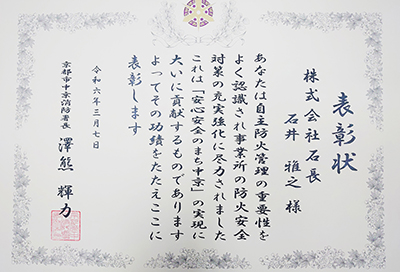 表彰状
株式会社石長
石井 雅之 様
あなたは自主防火管理の重要性を
よく認識され事業所の防火安全
対策の充実強化に尽力されました
これは「安心安全のまち中京」の実現に
大いに貢献するものであります
よってその功績をたたえここに
表彰します
令和六年三月七日
京都市中京消防署長 澤熊 輝力